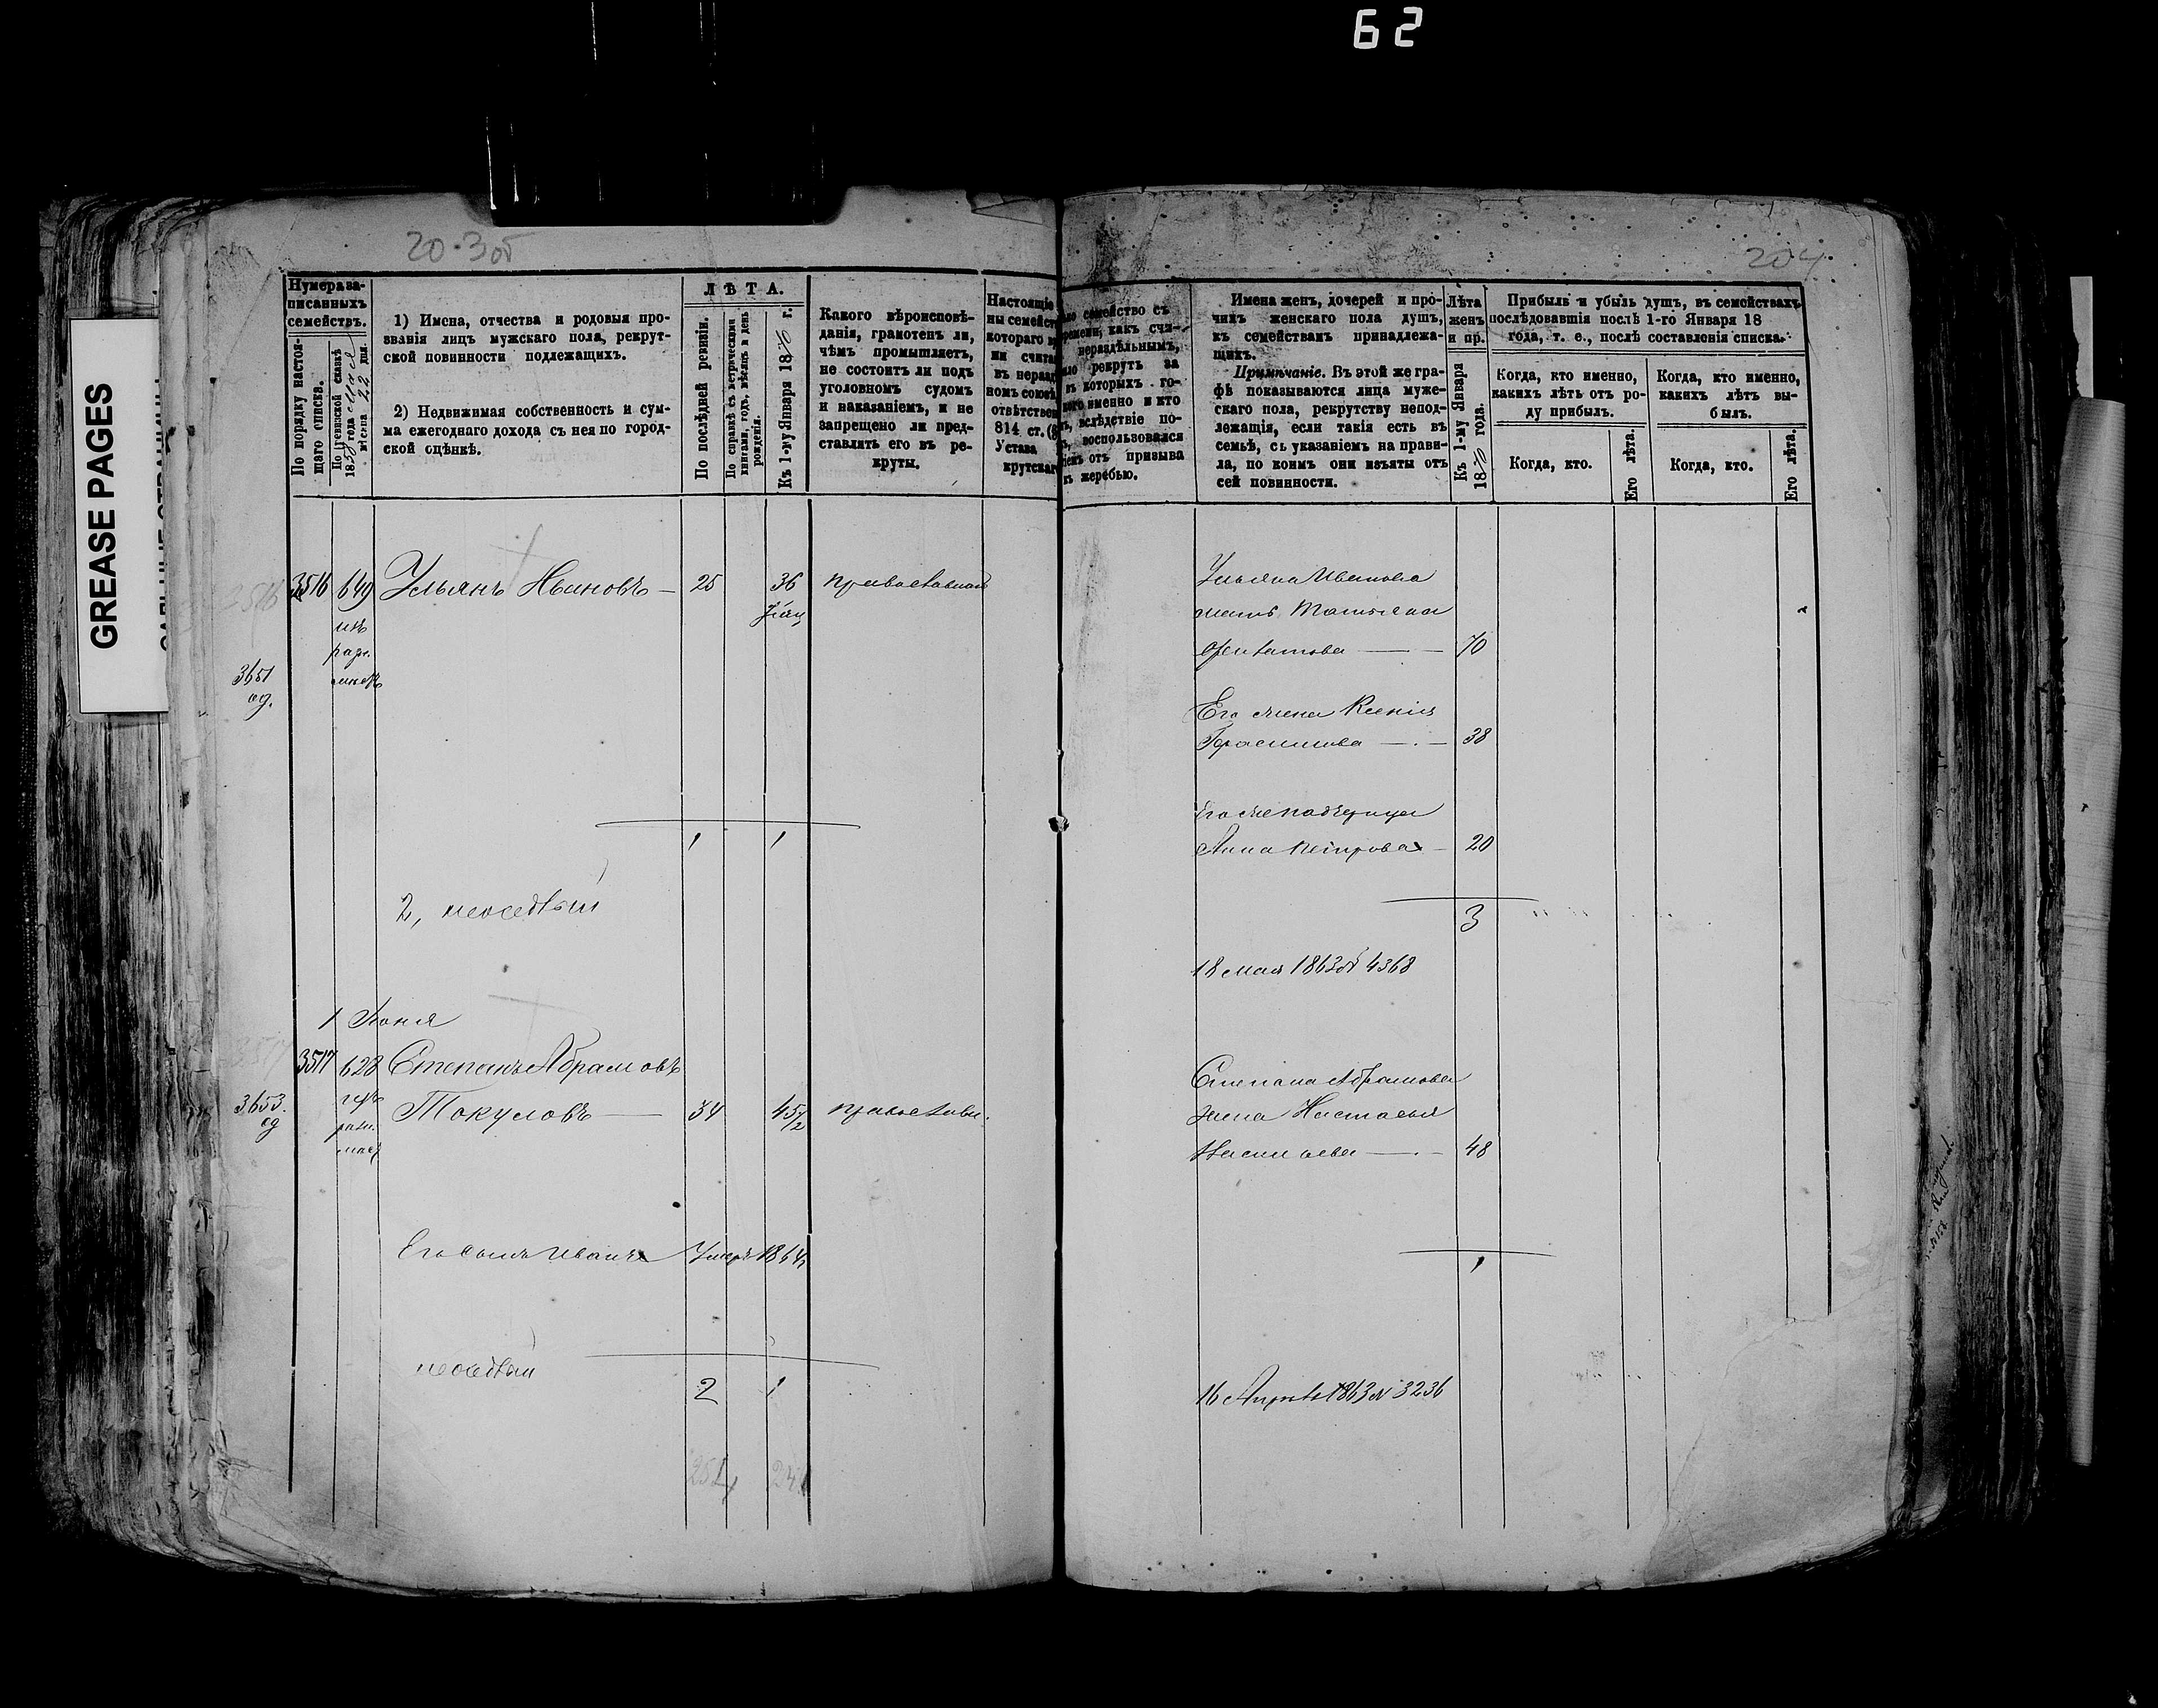 62
GREASE PAGES
20-3 об
204
Нумера за-
писанныхъ
семействъ.
По порядку настоя-
щаго списка.
По ревизской сказкѣ
1858 года
мѣсяца 22 дня.
1) Имена, отчества и родовыя про-
званія лицъ мужскаго пола, рекрут-
ской повинности подлежащихъ.
2) Недвижимая собственность и сум-
ма ежегоднаго дохода съ нея по город-
ской оцѣнкѣ.
ЛѢТА.
По послѣдней ревизіи.
По справкѣ съ метрическими
книгами, годъ, мѣсяцъ и день
рожденія.
Къ 1-му Января 1870 г.
Какого вѣроисповѣ-
данія, грамотенъ ли,
чѣмъ промышляетъ,
не состоитъ ли подъ
уголовномъ судомъ
и наказаніемъ, и не
запрещено ли пред-
ставлять его въ ре-
круты.
Настоящіе
ны семейст
котораго вр
ми счита
въ неразд
номъ союзѣ,
отвѣтствен
814 ст. (
Устава
крутскаг
но семейство съ
ремени, какъ счи-
нераздѣльнымъ,
ло рекрутъ за
въ которыхъ го-
кого именно и кто
ъ, вслѣдствіе по-
воспользовался
іемъ отъ призыва
къ жеребью.
Имена женъ, дочерей и про-
чихъ женскаго пола душъ,
къ семействамъ принадлежа-
щихъ.
Примѣчаніе. Въ этой же гра-
фѣ показываются лица муже-
скаго пола, рекрутству непод-
лежащія, если такія есть въ
семьѣ, съ указаніемъ на прави-
ла, по коимъ они изъяты отъ
сей повинности.
Лѣта
женъ
и пр.
Къ 1-му Января
1870 года.
Прибыль и убыль душъ, въ семействахъ
послѣдовавшія послѣ 1-го Января 18
года, т. е., послѣ составленія списка.
Когда, кто именно,
какихъ лѣтъ отъ ро-
ду прибылъ.
Когда, кто именно,
какихъ лѣтъ вы-
былъ.
Когда, кто.
Его лѣта.
Когда, кто.
Его лѣта.
3516
3516 649 Ульянъ Ивановъ — 25 36 православный
изъ
разн.
3651
1 1
2,
Ульяна Иванова
мать Татьяна
70
Его жена Ксенія
Герасимова — 38
Его же падчерица
Анна Петрова — 20
3
18 мая 1863 № 4368
1 Іюня
3517
3517 628 Степанъ Абрамовъ
Токуловъ — 34 45 1/2 православн.
изъ
разн.
3653.
Его сынъ Иванъ Умеръ 1864
2 1
254 241
Степана Абрамова
жена Настасья
Васильева — 48
1
16 Апрѣля 1863 № 3236